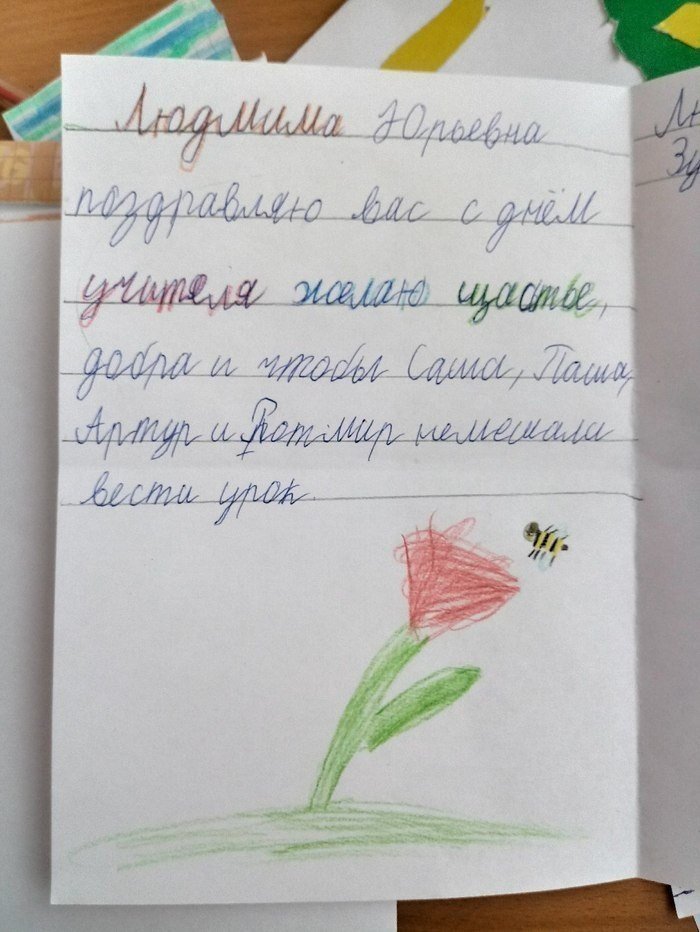 Людмима Юрьевна
поздравляю вас с днём
учителя желаю щастье,
добра и чтобы Саша, Паша,
Артур и Тотмир немешали
вести урок.
Лю
Зу